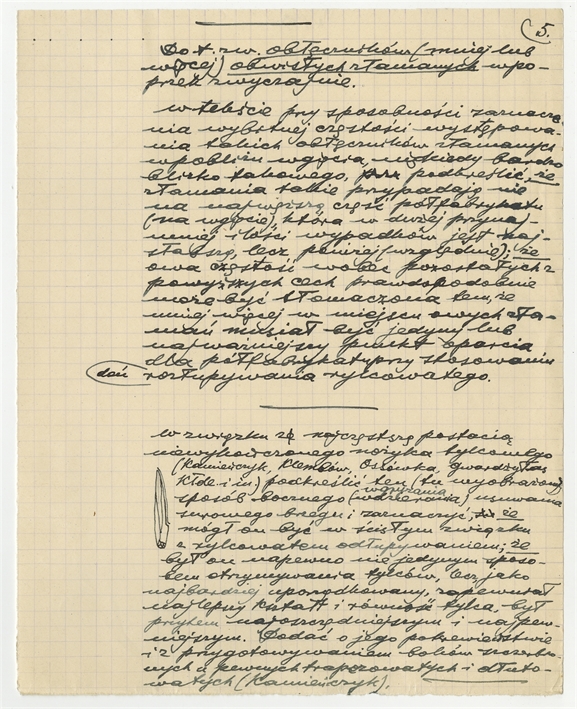 5.
Do t. zw. obłęczników (mniej lub
więcej) obwisłych złamanych wpo-
przek zwyczajnie.
W tekście przy sposobności zaznacze-
nia wybitnej częstości występowa-
nia takich obłęczników złamanych
wpobliżu wgięcia, niekiedy bardzo
blisko takowego, podkreślić, że
złamania takie przypadają nie
na najwęższą część półfabrykatu
(na wgięcie), która w dużej przynaj-
mniej ilości wypadków jest naj-
słabszą, lecz poniżej (względnie); że
owa częstość wobec pozostałych z
powyższych cech prawdopodobnie
może być tłomaczona tem, że
mniej więcej w miejscu owych zła-
mań musiał być jedyny lub
najważniejszy punkt oparcia
dla półfabrykatu przy stosowaniu
doń rozłupywania rylcowatego.
W związku z najczęstszą postacią
niewykończonego nożyka tylcowego
(Kamieńczyk, Klembów, Osówka,
i in.) podkreślić ten (tu wyobrażony)
sposób bocznego (wdzierania, wgryzania) usuwania
surowego brzegu i zaznaczyć, że
mógł on być w ścisłym związku
z rylcowatem odłupywaniem; że
był on napewno nie jedynym sposo-
bem otrzymywania tylców, lecz jako
najbardziej uporządkowany, zapewniał
najlepszy kształt i równość tylca, był
przytem najoszczędniejszym i najpew-
niejszym. Dodać o jego pokrewieństwie
i z przygotowywaniem boków
nych u pewnych trapezowatych i dłuto-
watych (Kamieńczyk).